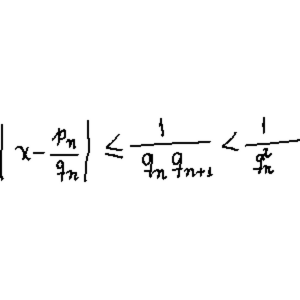 | x - \frac{p_n}{q_n} | \leq \frac{1}{q_n q_{n+1}} < \frac{1}{q_n^2}